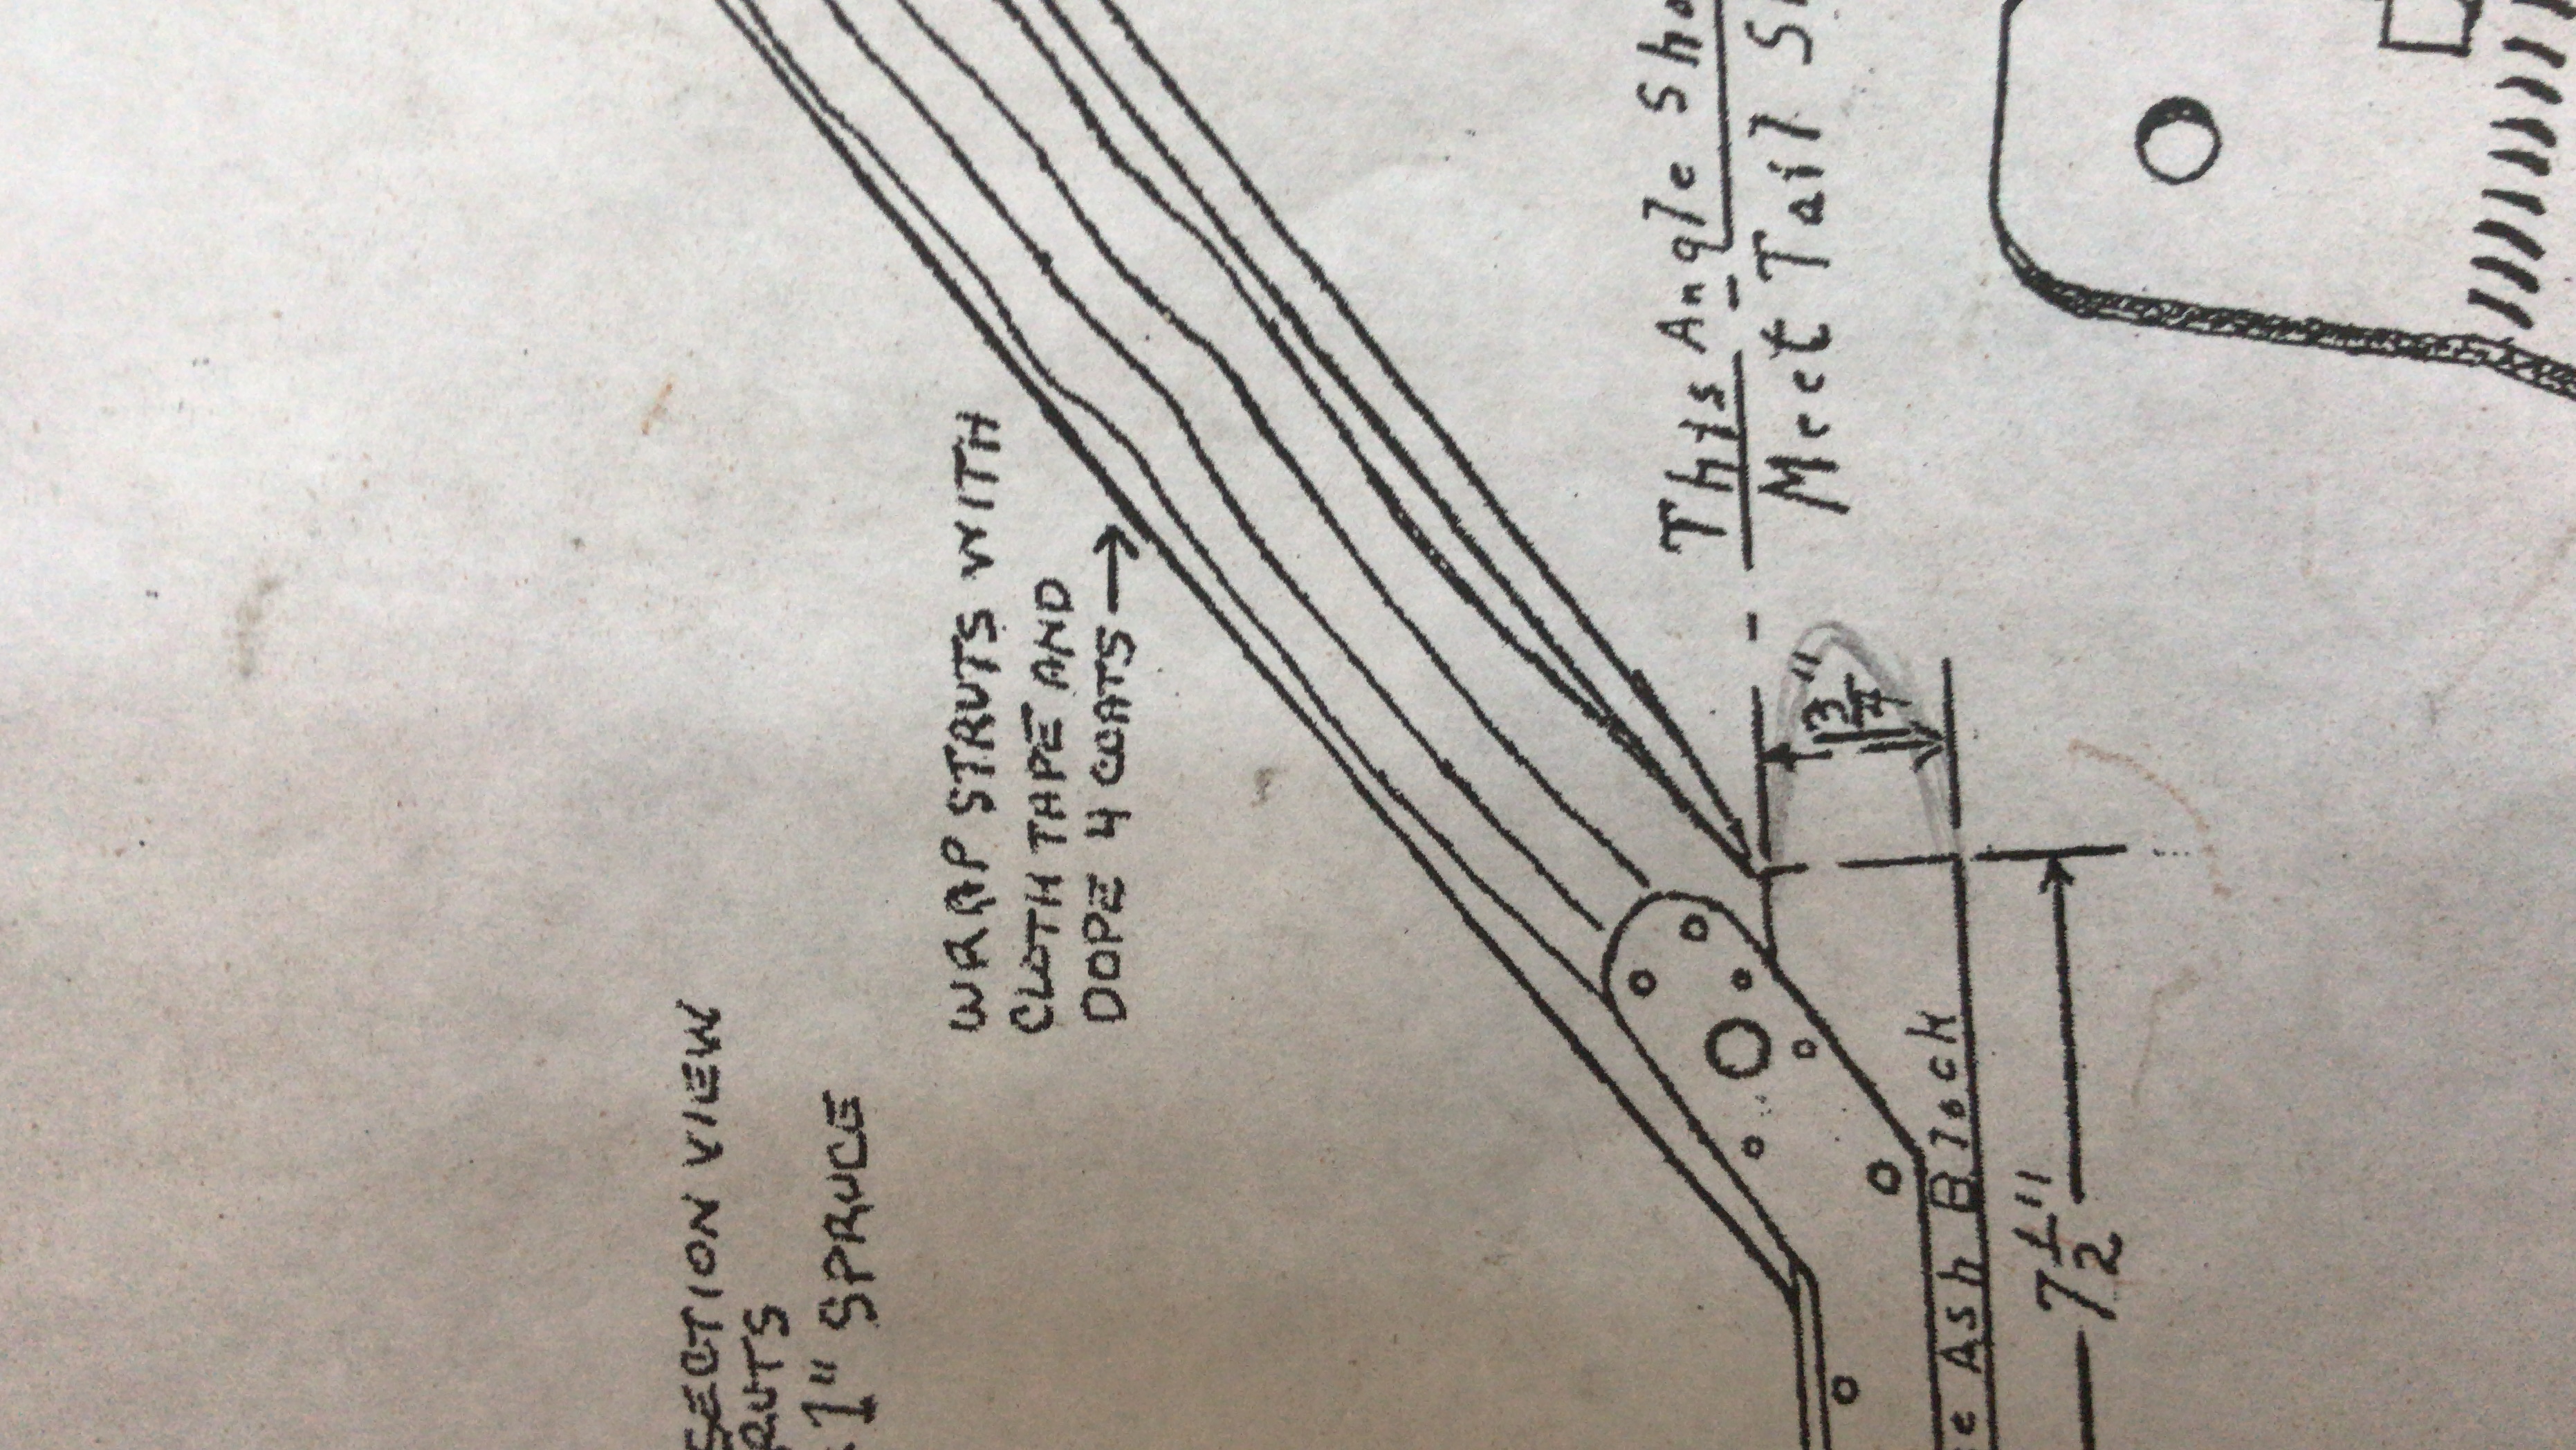 SECTION VIEW
RUTS
1" SPRUCE
WRAP STRUTS WITH
CLOTH TAPE AND
DOPE 4 COATS →
This Angle Sho
Meet Tail S
3/4"
e Ash Block
7 1/2"